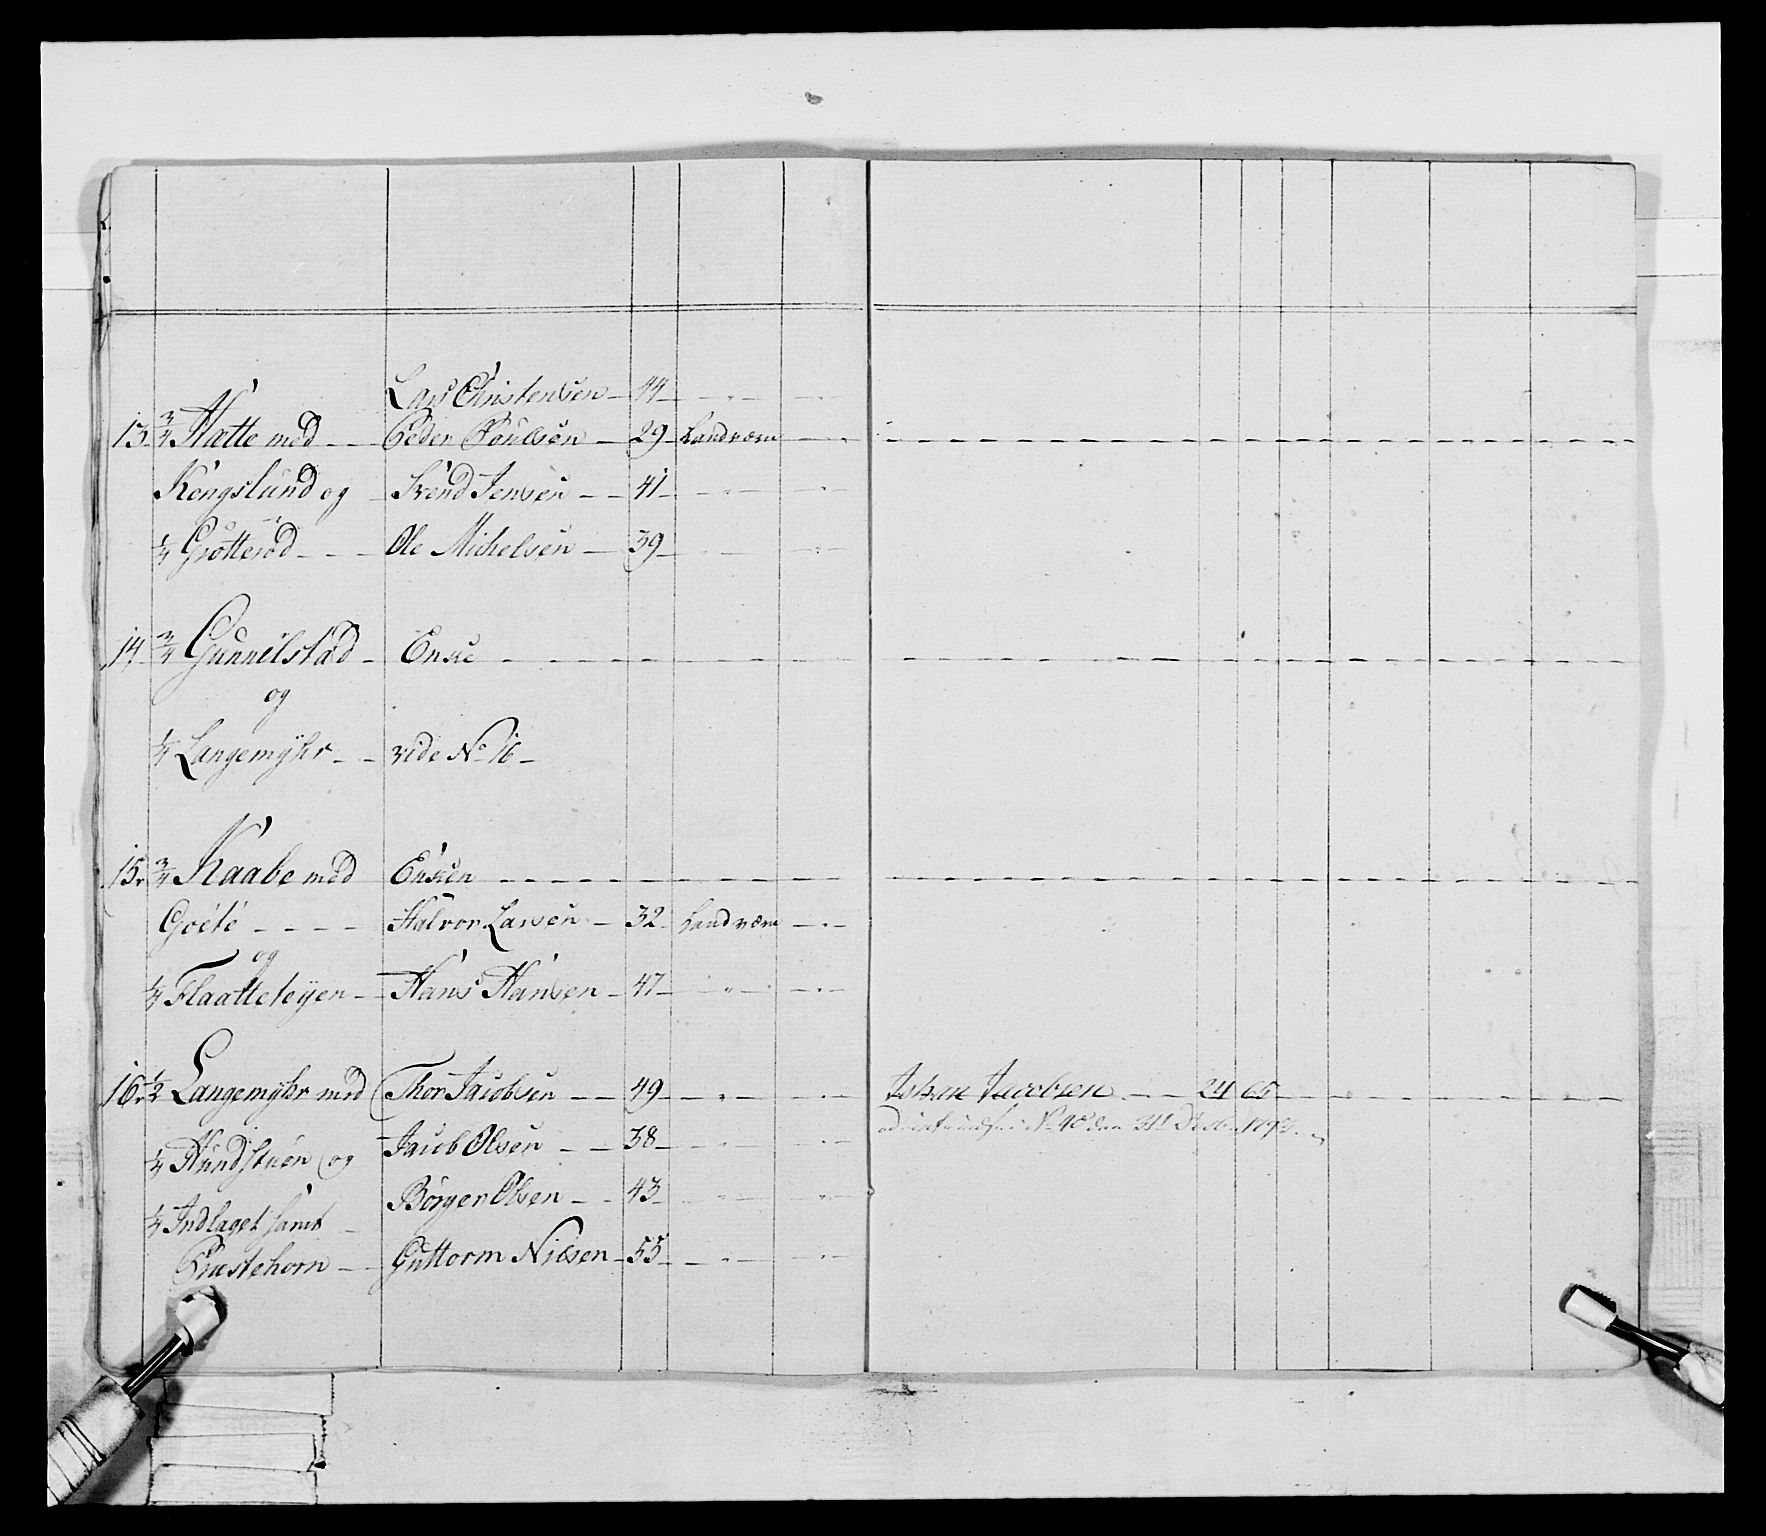 Lars Christensen - 44 - - " - - " -
13 3/4 Hætte med - - Peder Poulsen - 29 - Landværn - " -
Kongslund og - Svend Jensen - - 41 - - " - - " -
1/4 Grøtterød - - - Ole Michelsen - 39 - - " - - " -
14 3/4 Gunnelstad - Enke - - -
og
1/4 Langemyhr - - vide No 16 -
15 3/4 Kaabe med Enken - - -
Goete - - - - Halvor Larsen - 32 - Landværn - " -
og
1/4 Flaatteteyen - - Hans Hansen - 47 - - " - - " -
16 1/2 Langemyhr med Thor Jacobsen - - 49 - - " - - " - Johan Jacobsen - - - 24 65 - - -
1/4 Hundstuen og Jacob Olsen - - 38 - - " - - " - No 40 den 31t
1/4 Indlaget samt - Børger Olsen - - 43 - - " - - " -
Præstehorn - - Guttorm Nilsen - 55 - - " - - " -